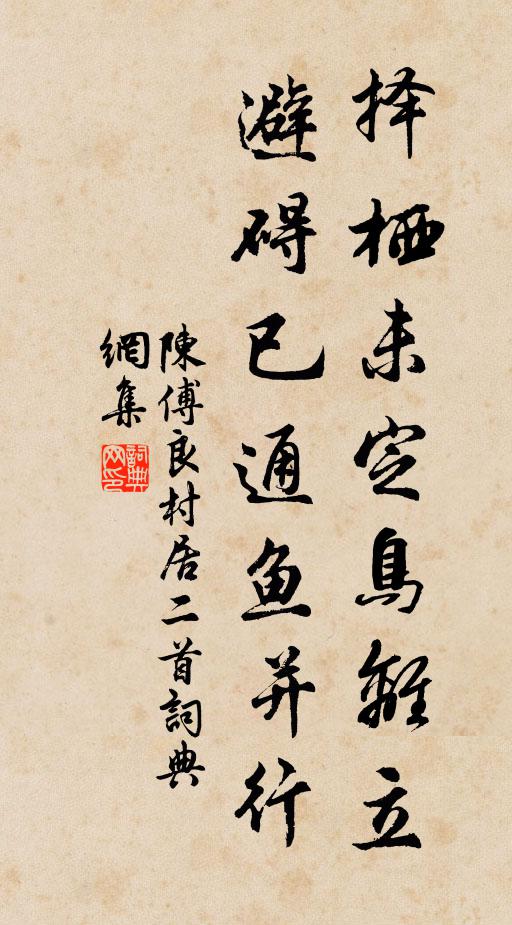 择栖未定鸟離立
避碍已通鱼并行
陳傅良村居二首詞典
網集
詞典
网印